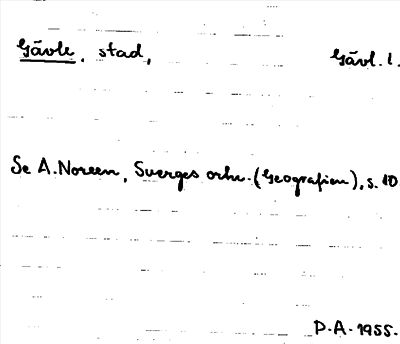 Gävle, stad, Gävl. l.
Se A. Noreen, Sverges ortn. (Geografien), s. 10
D. A. 1955.